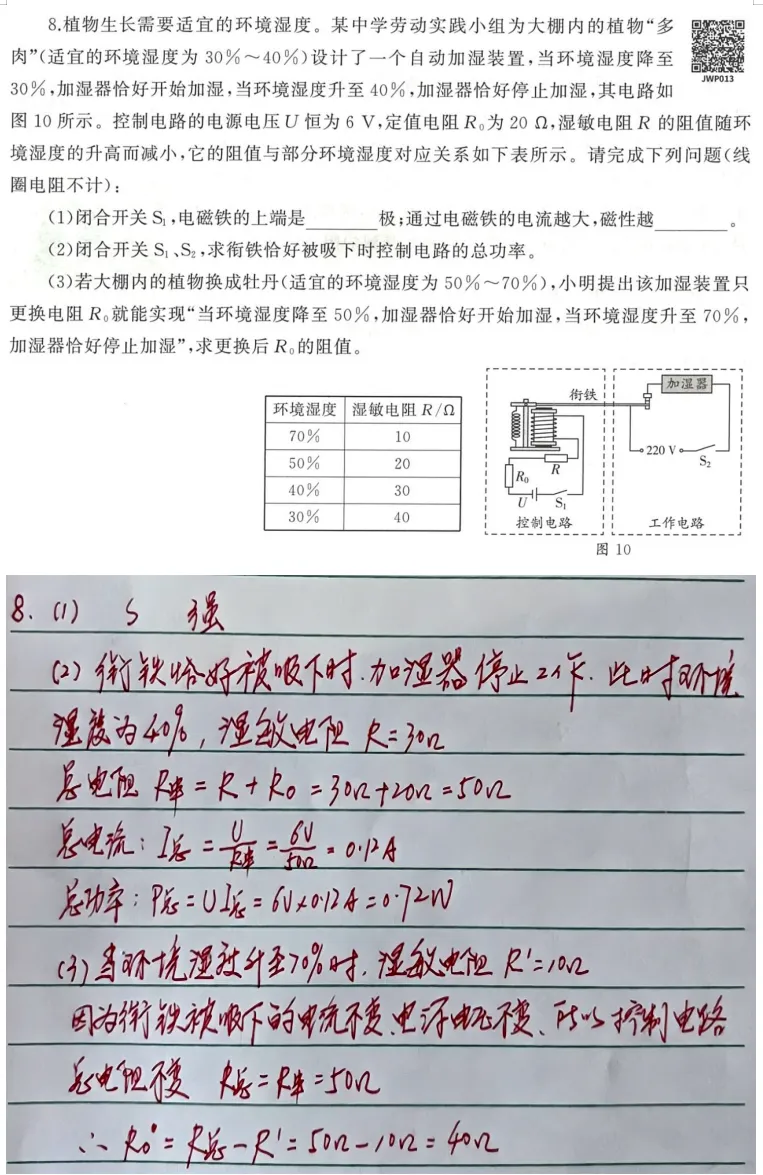 8.植物生长需要适宜的环境湿度。某中学劳动实践小组为大棚内的植物“多
肉”(适宜的环境湿度为 30％～40％)设计了一个自动加湿装置,当环境湿度降至
30％,加湿器恰好开始加湿,当环境湿度升至 40％,加湿器恰好停止加湿,其电路如
JWP013
图 10 所示。控制电路的电源电压 U 恒为 6 V,定值电阻 R₀为 20 Ω,湿敏电阻 R 的阻值随环
境湿度的升高而减小,它的阻值与部分环境湿度对应关系如下表所示。请完成下列问题(线
圈电阻不计):
(1)闭合开关 S₁,电磁铁的上端是________极;通过电磁铁的电流越大,磁性越________。
(2)闭合开关 S₁、S₂,求衔铁恰好被吸下时控制电路的总功率。
(3)若大棚内的植物换成牡丹(适宜的环境湿度为 50％～70％),小明提出该加湿装置只
更换电阻 R₀就能实现“当环境湿度降至 50％,加湿器恰好开始加湿,当环境湿度升至 70％,
加湿器恰好停止加湿”,求更换后 R₀的阻值。
环境湿度 湿敏电阻 R/Ω
70％ 10
50％ 20
40％ 30
30％ 40
衔铁 加湿器
220 V S₂
R₀ R
U S₁
控制电路 工作电路
图 10
8. (1) S 强
(2) 衔铁恰好被吸下时.加湿器停止工作.此时环境
湿度为40%,湿敏电阻 R=30Ω
总电阻 R串=R+R₀=30Ω+20Ω=50Ω
总电流: I总=U/R串=6V/50Ω=0.12A
总功率: P总=UI总=6V×0.12A=0.72W
(3) 当环境湿度升至70%时,湿敏电阻 R'=10Ω
因为衔铁被吸下的电流不变、电源电压不变、所以控制电路
总电阻不变 R总=R串=50Ω
∴ R₀'=R总-R'=50Ω-10Ω=40Ω